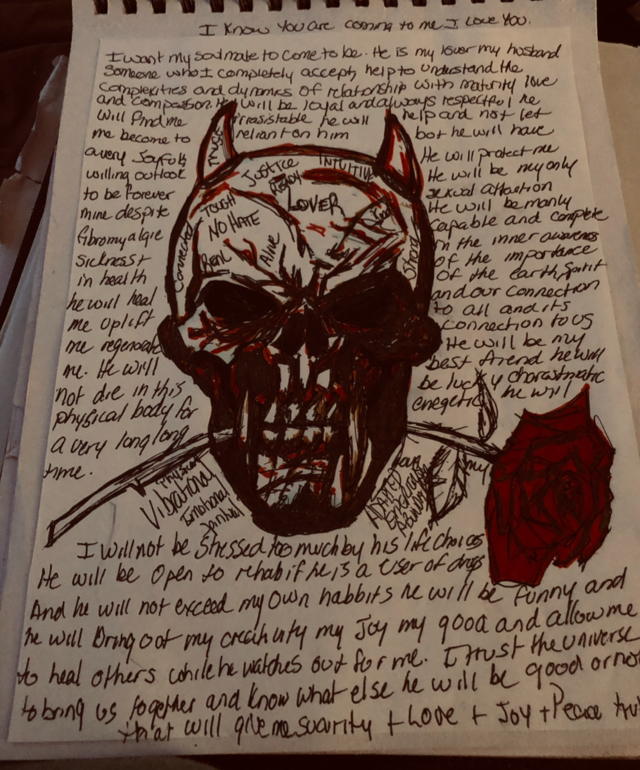 I Know You are coming to me I Love You.
I want my soulmate to come to be. He is my lover my husband
Someone who I completely accept, help to understand the
complexities and dynamics of relationship with maturity love
and compassion. He will be loyal and always respectful he
will find me irresistable he will help and not let
me become to reliant on him bot he will have
a very Joyfull He will protect me
willing outlook He will be my only
to be forever sexual attraction
mine despite He will be manly
fibromyalgie capable and complete
sickness in the inner awareness
in health of the importance
he will heal of the earth, Spirit
me uplift and our connection
me regenerate to all and its
me. He will connection to us
not die in this He will be my
physical body for best friend he will
a very long long be lucky charastmatic
time. energetic he will
JUSTICE
READY
INTUITIVE
LOVER
TOUGH
NO HATE
Real
Alive
Connected
Strong
Physical
Vibrational
Emotional
my
I will not be stressed too much by his life choices
He will be Open to rehab if he is a user of drugs
And he will not exceed my own habbits he will be funny and
he will Bring out my creativity my Joy my good and allow me
to heal others while he watches out for me. I trust the universe
to bring us together and know what else he will be good or not
that will give me suarity + Love + Joy + Peace